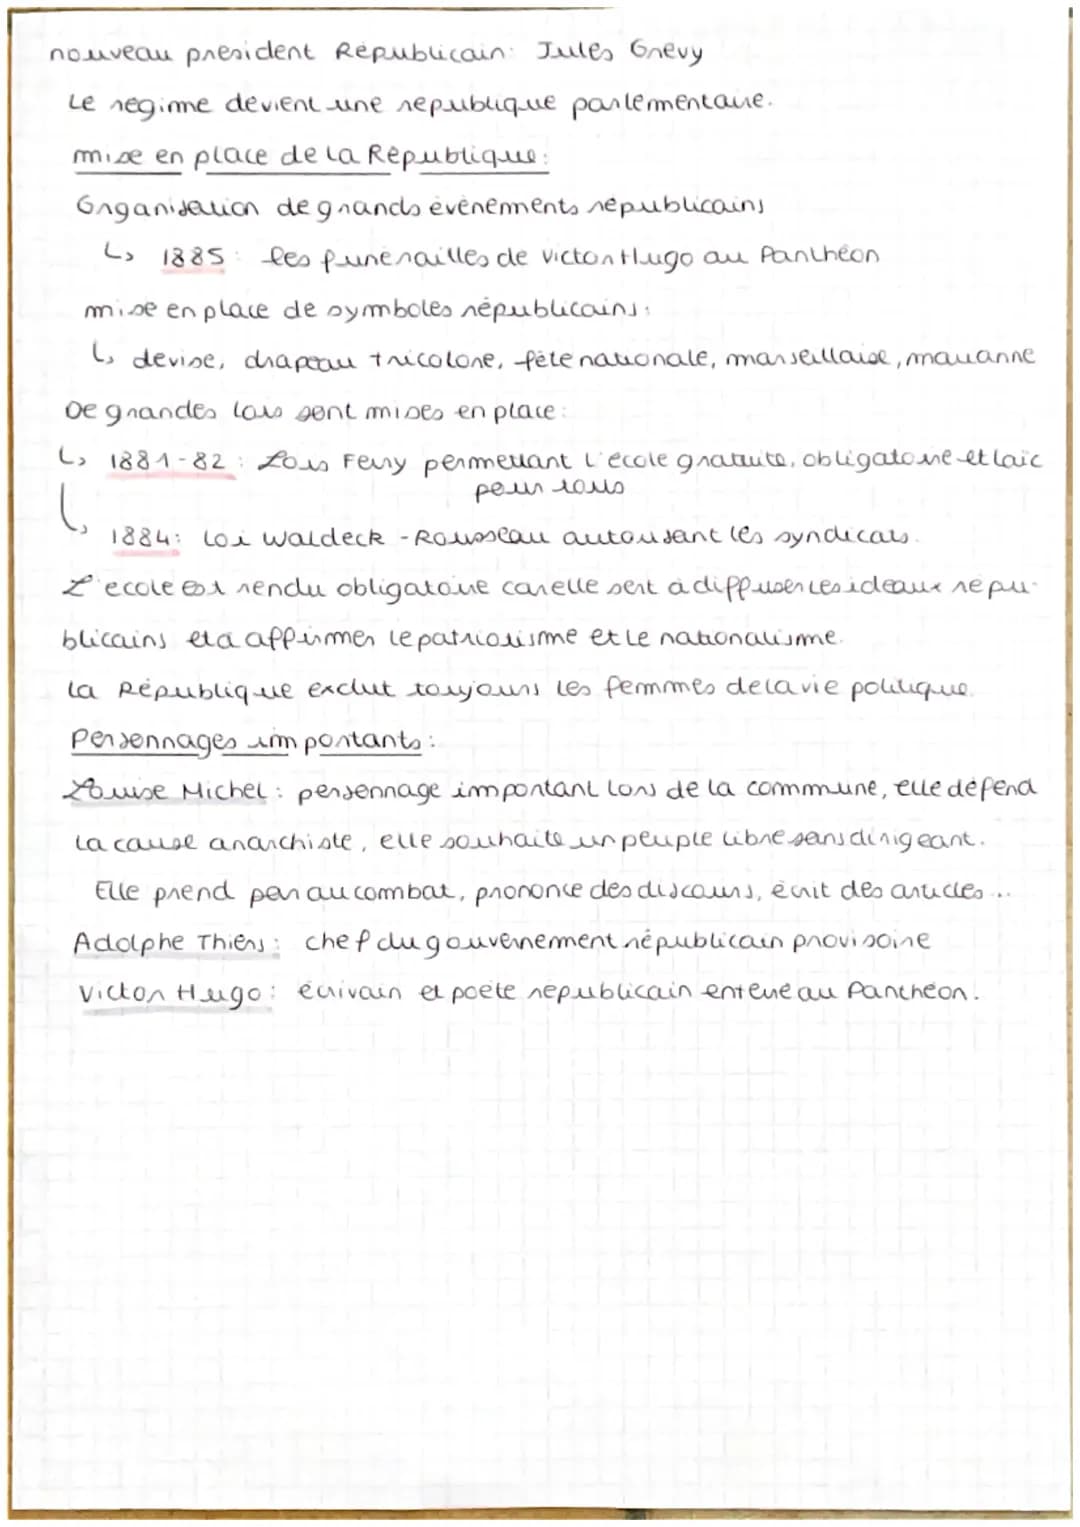 nouveau président Républicain: Jules Grévy
Le régime devient une république parlementaire.
mise en place de la République:
Organisation de grands évènements républicains
↳ 1885: les funérailles de Victor Hugo au Panthéon
mise en place de symboles républicains:
↳ devise, drapeau tricolore, fête nationale, marseillaise, marianne
De grandes lois sont mises en place:
↳ 1881-82: Lois Ferry permettant l'école gratuite, obligatoire et laïc
pour tous
↳ 1884: Loi Waldeck-Rousseau autorisant les syndicats.
L'école est rendu obligatoire car elle sert à diffuser les idéaux répu-
blicains et à affirmer le patriotisme et le nationalisme.
La République exclut toujours les femmes de la vie politique.
Personnages importants:
Louise Michel: personnage important lors de la commune, elle défend
la cause anarchiste, elle souhaite un peuple libre sans dirigeant.
Elle prend par au combat, prononce des discours, écrit des articles...
Adolphe Thiers: chef du gouvernement républicain provisoire
Victor Hugo: écrivain et poète républicain enterré au Panthéon.